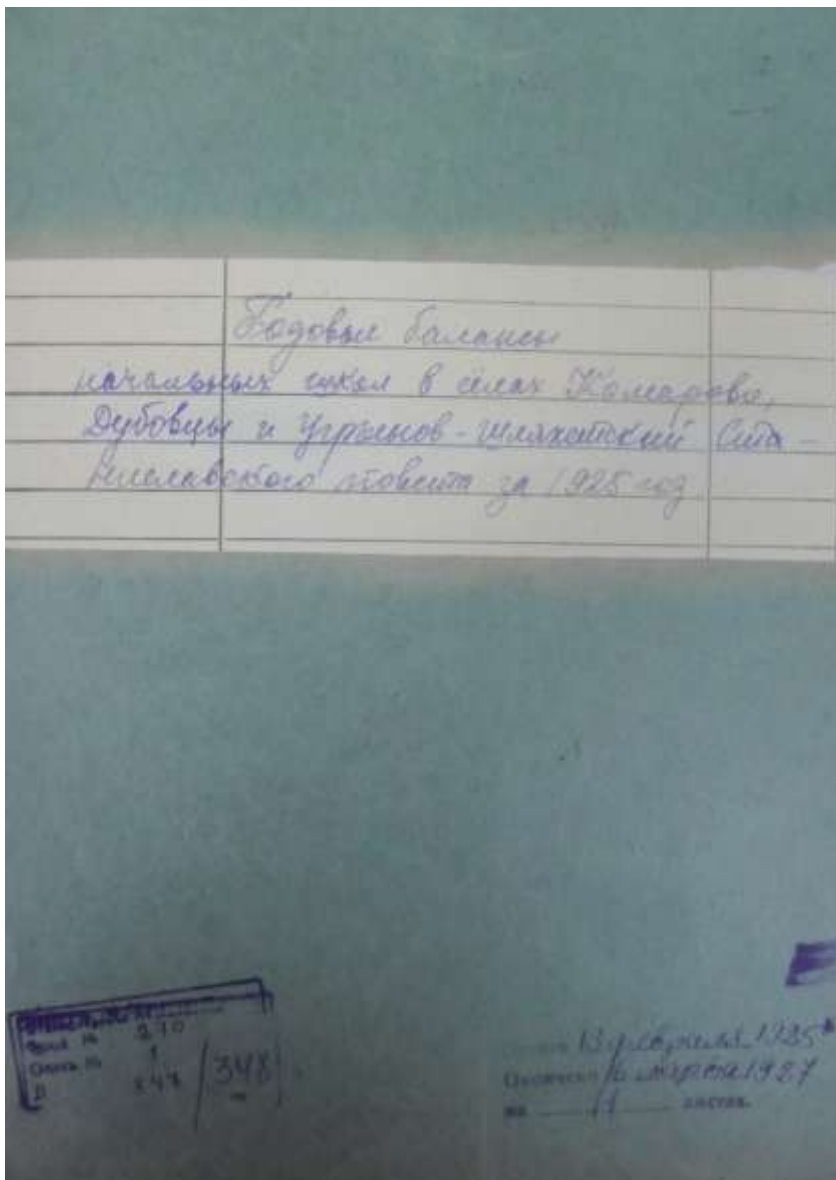 Годовые балансы
начальных школ в сёлах Комарово,
Дубовцы и Угрынов-Шляхетский Ста-
ниславского повета за 1925 год
Фонд № 270
Опись № 1
347 / 348
13 февраля 1925
Окончено марта 1927
на 11 листах.